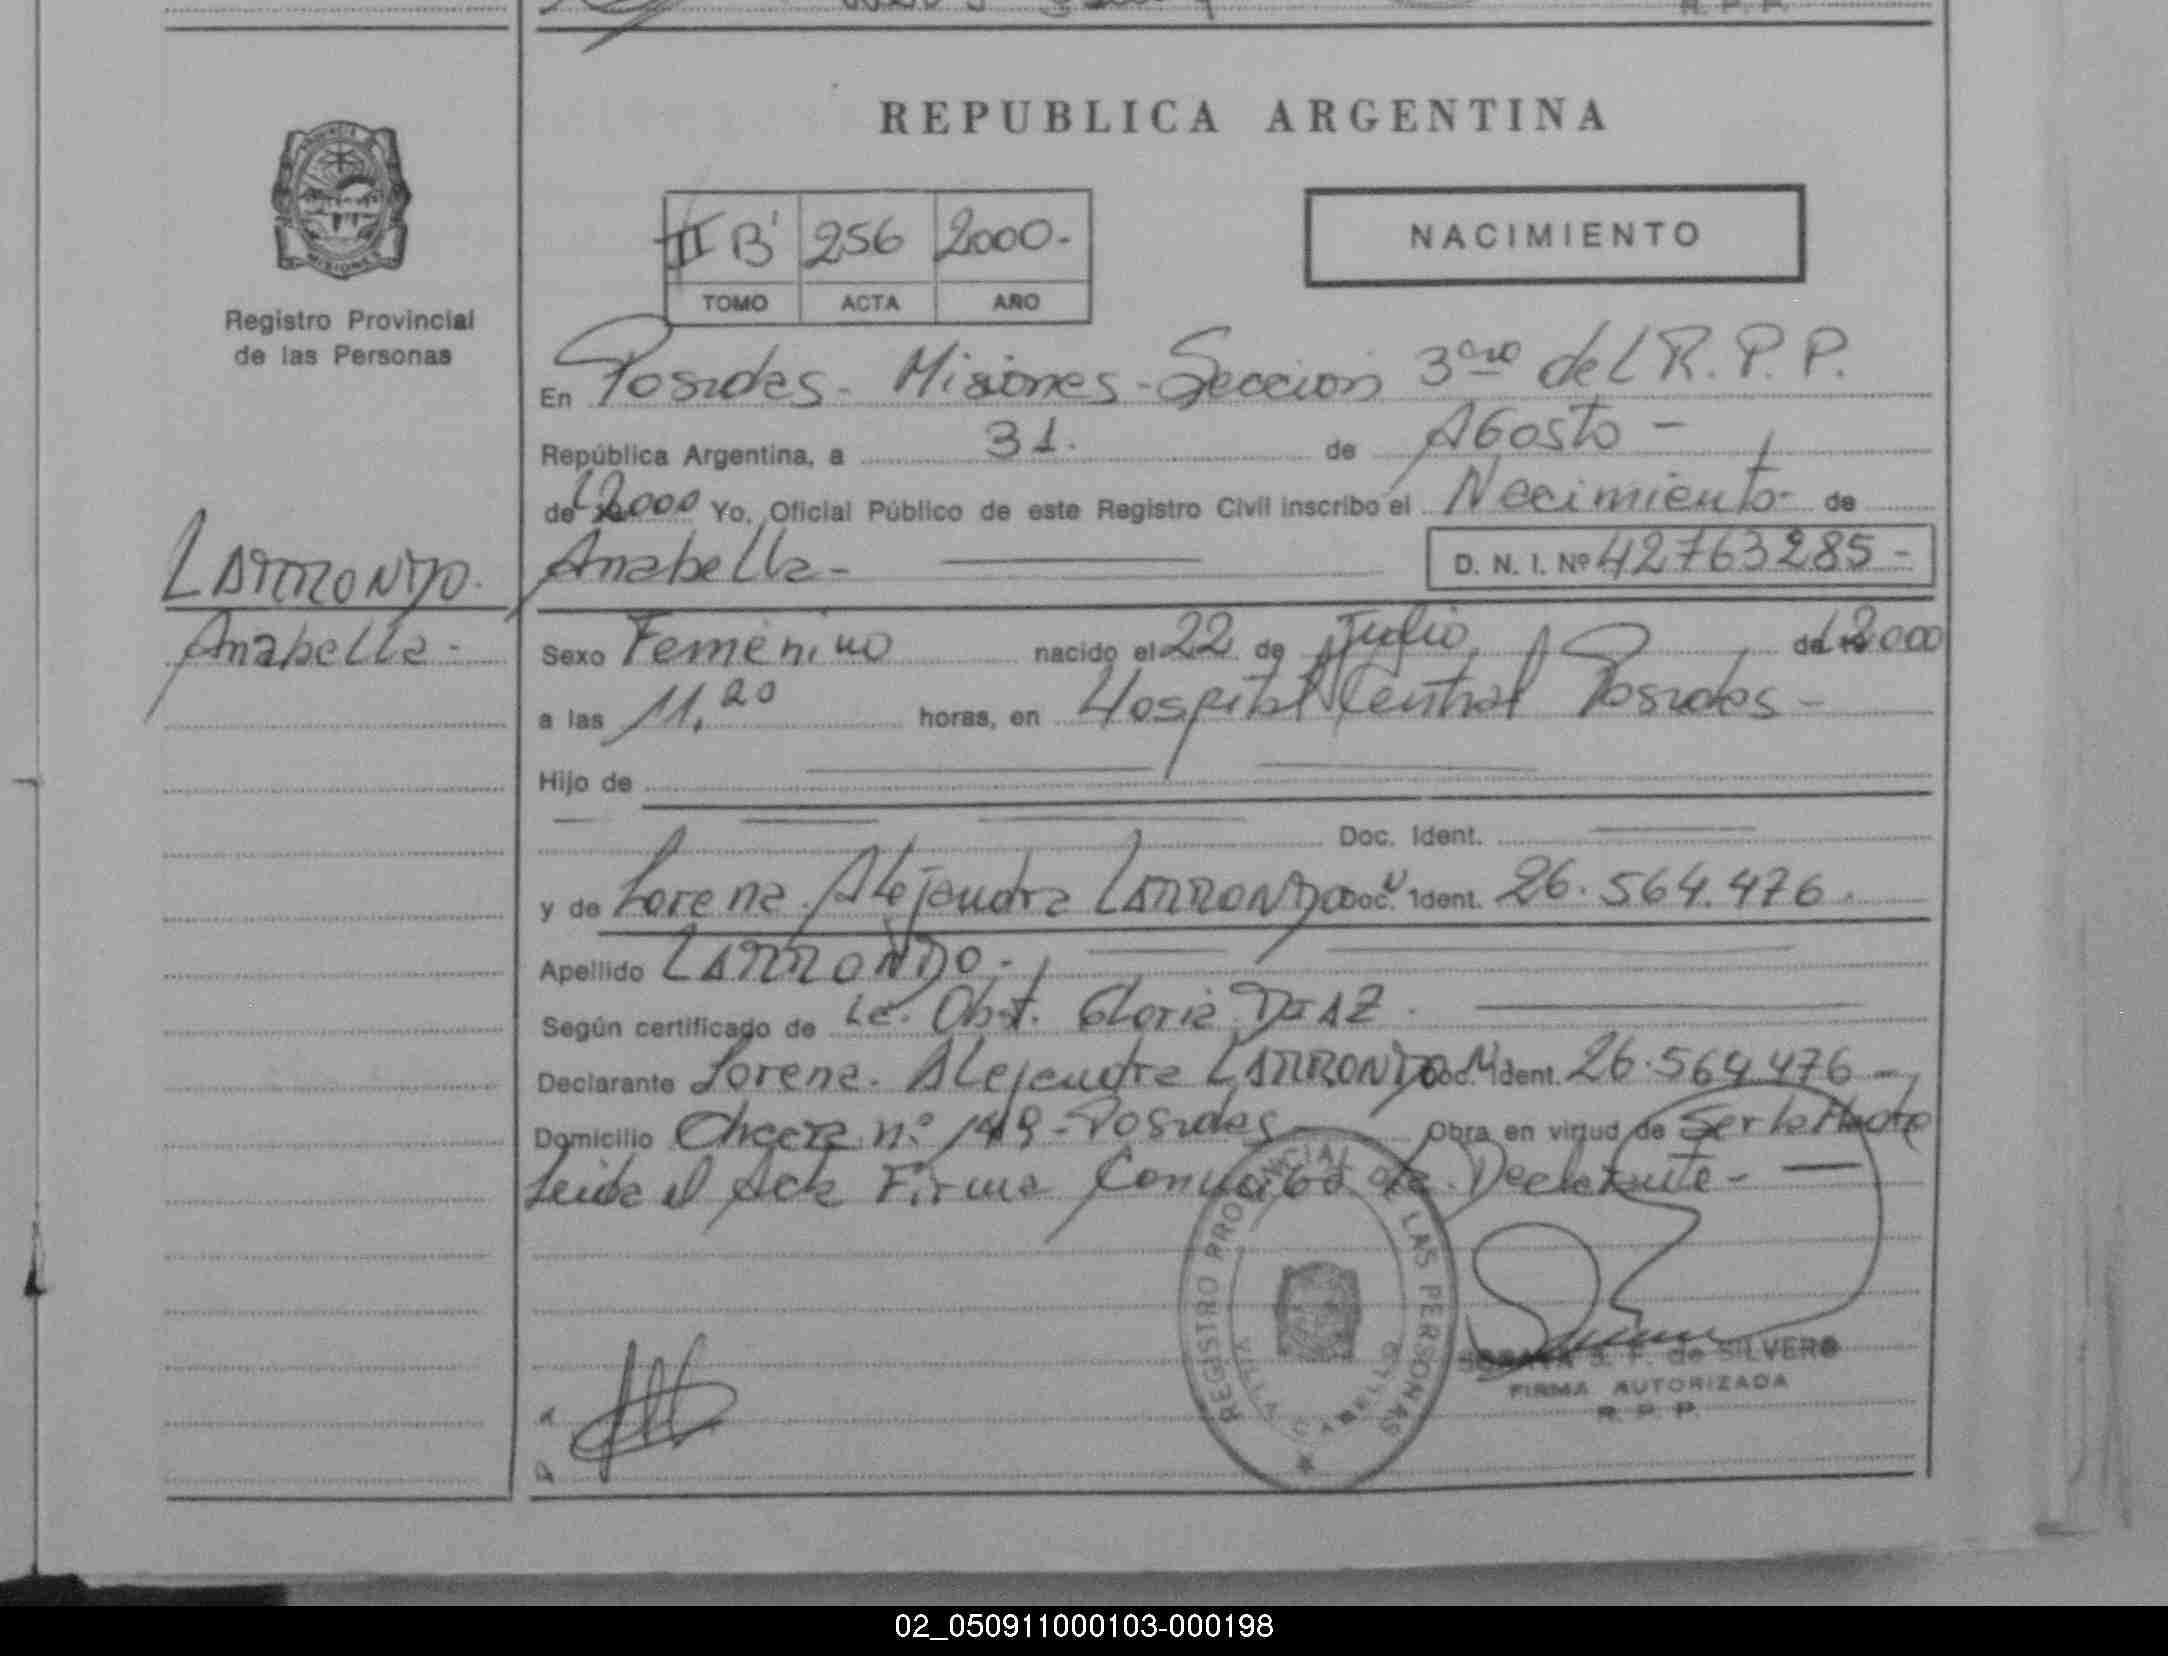 R. P. P.
REPUBLICA ARGENTINA
PROVINCIA
MISIONES
Registro Provincial
de las Personas
III B' 256 2000-
TOMO ACTA AÑO
NACIMIENTO
En Posadas - Misiones - Sección 3era del R. P. P.
República Argentina, a 31. de Agosto -
de 2000 Yo, Oficial Público de este Registro Civil inscribo el Nacimiento - de
LARRONDO.
Anabella -
Anabella - D. N. I. Nº 42763285 -
Sexo Femenino nacido el 22 de Julio de 2000
a las 11.20 horas, en Hospital Central Posadas -
Hijo de
Doc. Ident.
y de Lorena Alejandra LARRONDO Doc. Ident. 26.564.476.
Apellido LARRONDO -
Según certificado de Lc. Obst. Gloria DIAZ.
Declarante Lorena Alejandra LARRONDO Doc. Ident. 26.564.476 -
Domicilio Chacra n° 149 - Posadas Obra en virtud de Ser la Madre
Leida el Acta Firma Conmigo la Declarante -
REGISTRO PROVINCIAL DE LAS PERSONAS
VILLA CABELLO
S. F. de SILVERO
FIRMA AUTORIZADA
R. P. P.
02_050911000103-000198